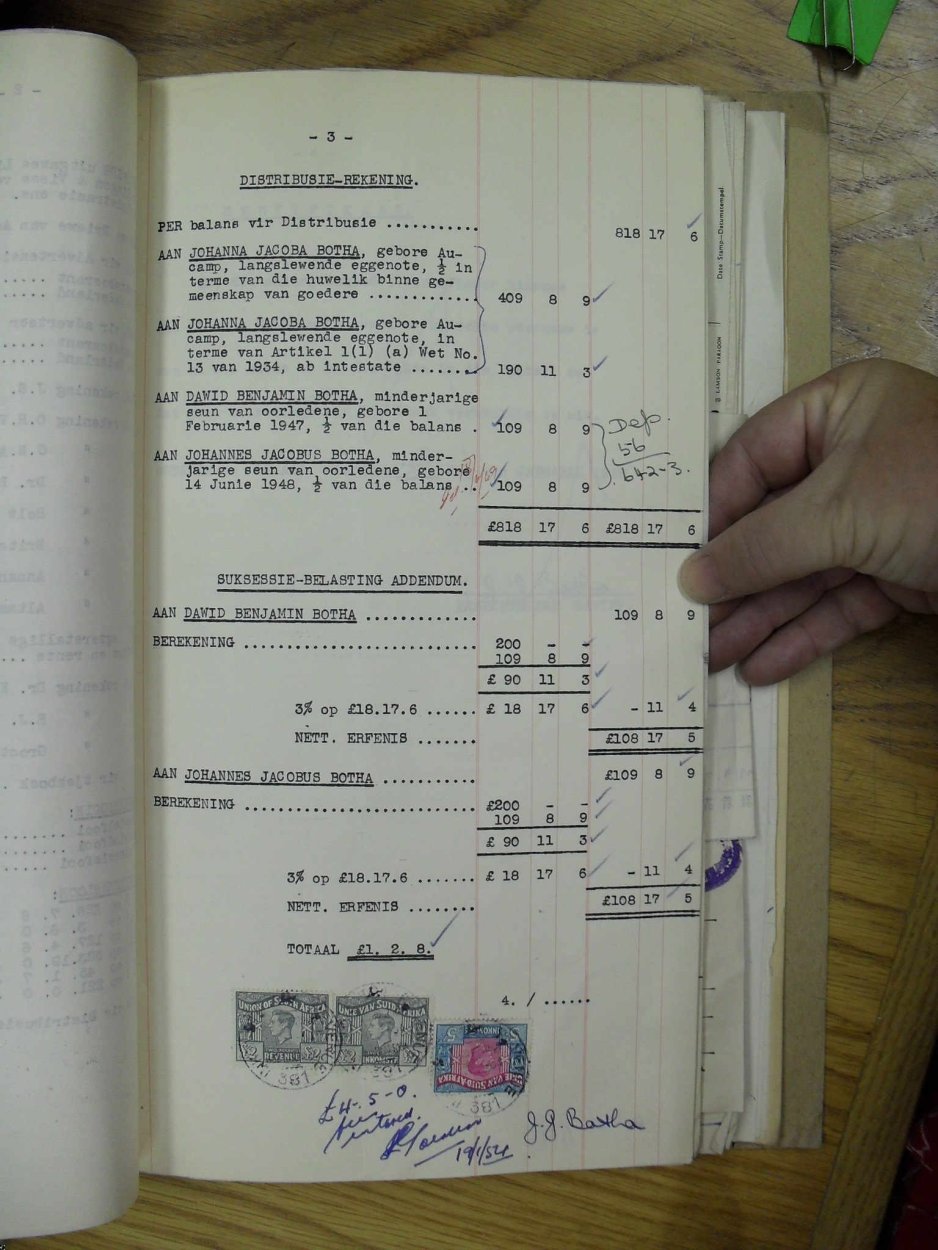 - 3 -
DISTRIBUSIE-REKENING.
PER balans vir Distribusie ........... 818 17 6
AAN JOHANNA JACOBA BOTHA, gebore Au-
camp, langslewende eggenote, ½ in
terme van die huwelik binne ge-
meenskap van goedere ............. 409 8 9
AAN JOHANNA JACOBA BOTHA, gebore Au-
camp, langslewende eggenote, in
terme van Artikel 1(1) (a) Wet No.
13 van 1934, ab intestate ........ 190 11 3
AAN DAWID BENJAMIN BOTHA, minderjarige
seun van oorledene, gebore 1
Februarie 1947, ½ van die balans . 109 8 9
AAN JOHANNES JACOBUS BOTHA, minder-
jarige seun van oorledene, gebore
14 Junie 1948, ½ van die balans .. 109 8 9
Dep.
56
642-3.
£818 17 6 £818 17 6
SUKSESSIE-BELASTING ADDENDUM.
AAN DAWID BENJAMIN BOTHA ............. 109 8 9
BEREKENING ........................... 200 - -
109 8 9
£ 90 11 3
3% op £18.17.6 ...... £ 18 17 6 - 11 4
NETT. ERFENIS ....... £108 17 5
AAN JOHANNES JACOBUS BOTHA ........... £109 8 9
BEREKENING ........................... £200 - -
109 8 9
£ 90 11 3
3% op £18.17.6 ....... £ 18 17 6 - 11 4
NETT. ERFENIS ........ £108 17 5
TOTAAL £1. 2. 8.
4. / ......
UNION OF SOUTH AFRICA
£2 REVENUE £2
UNIE VAN SUID-AFRIKA
£2 INKOMSTE £2
UNIE VAN SUID-AFRIKA
381
381
381
£4-5-0.
fee
J.J. Botha
19/1/54